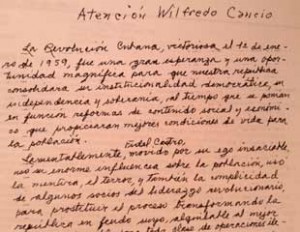 Atención Wilfredo Cancio
La Revolución Cubana, victoriosa el 1º de ene-
ro de 1959, fue una gran esperanza y una opor-
tunidad magnífica para que nuestra república
consolidara su institucionalidad democrática, su
independencia y soberanía, al tiempo que se ponían
en función reformas de contenido social y económi-
co que propiciaran mejores condiciones de vida para
la población.
Fidel Castro,
Lamentablemente, movido por su ego insaciable,
usó su enorme influencia sobre la población, usó
la mentira, el terror, y también la complicidad
de algunos socios del liderazgo revolucionario,
para prostituir el proceso transformando la
república en feudo suyo, alquilable al mejor
toda clase de operaciones de-